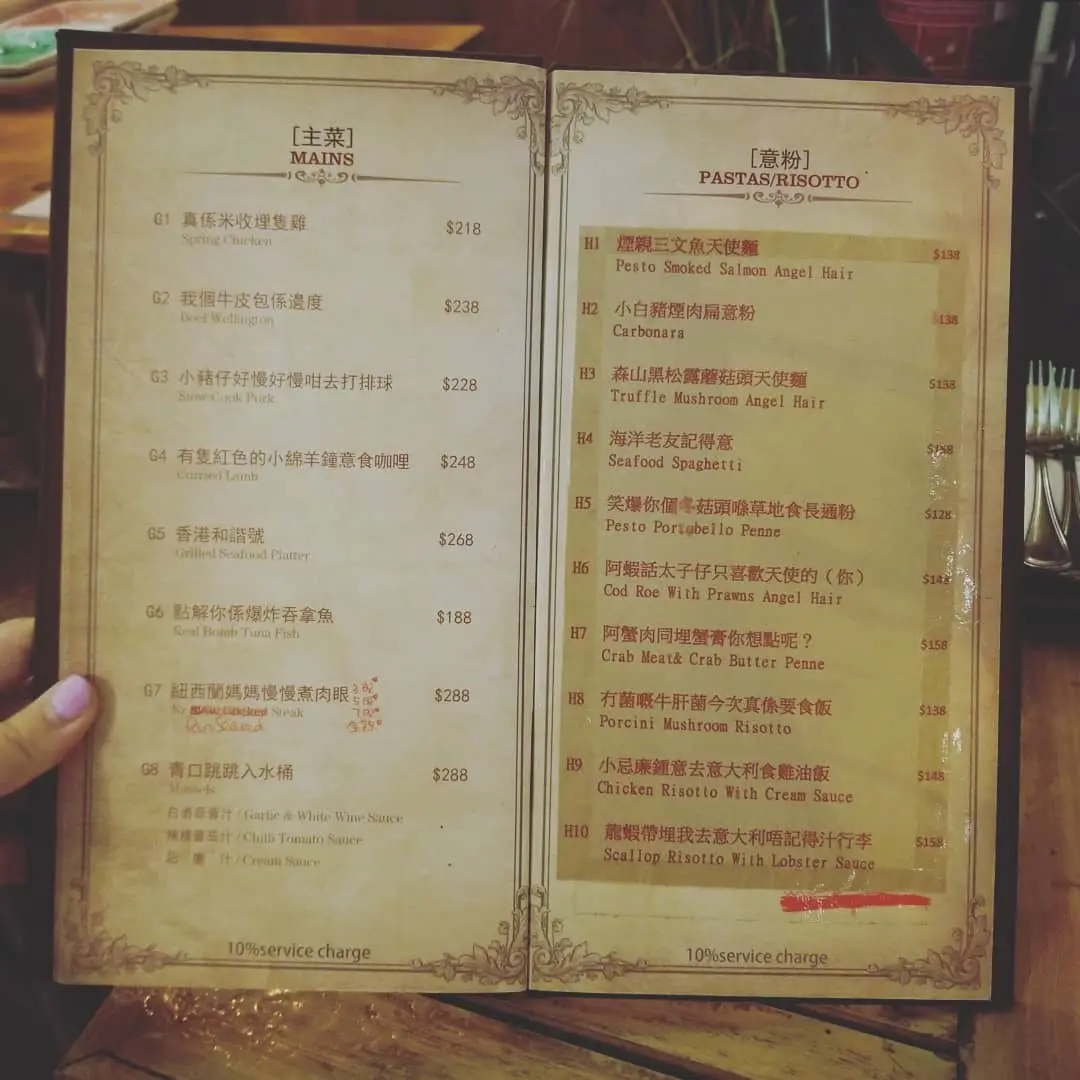 [主菜]
MAINS
G1 真係米收埋隻雞 $218
Spring Chicken
G2 我個牛皮包係邊度 $238
Beef Wellington
G3 小豬仔好慢好慢咁去打排球 $228
Slow Cook Pork
G4 有隻紅色的小綿羊鐘意食咖哩 $248
Curried Lamb
G5 香港和諧號 $268
Grilled Seafood Platter
G6 點解你係爆炸吞拿魚 $188
Real Bomb Tuna Fish
G7 紐西蘭媽媽慢慢煮肉眼 $288
Nz Steak
Pan Seared
G8 青口跳跳入水桶 $288
Mussels
白酒蒜蓉汁 / Garlic & White Wine Sauce
辣椒蕃茄汁 / Chilli Tomato Sauce
忌廉汁 / Cream Sauce
10%service charge
[意粉]
PASTAS/RISOTTO
H1 煙親三文魚天使麵 $138
Pesto Smoked Salmon Angel Hair
H2 小白豬煙肉扁意粉 $138
Carbonara
H3 森山黑松露蘑菇頭天使麵 $138
Truffle Mushroom Angel Hair
H4 海洋老友記得意
Seafood Spaghetti
H5 笑爆你個冬菇頭喺草地食長通粉 $128
Pesto Portobello Penne
H6 阿蝦話太子仔只喜歡天使的（你）
Cod Roe With Prawns Angel Hair
H7 阿蟹肉同埋蟹膏你想點呢？ $158
Crab Meat& Crab Butter Penne
H8 冇菌嘅牛肝菌今次真係要食飯 $138
Porcini Mushroom Risotto
H9 小忌廉鍾意去意大利食雞油飯 $148
Chicken Risotto With Cream Sauce
H10 龍蝦帶埋我去意大利唔記得汁行李 $158
Scallop Risotto With Lobster Sauce
10%service charge